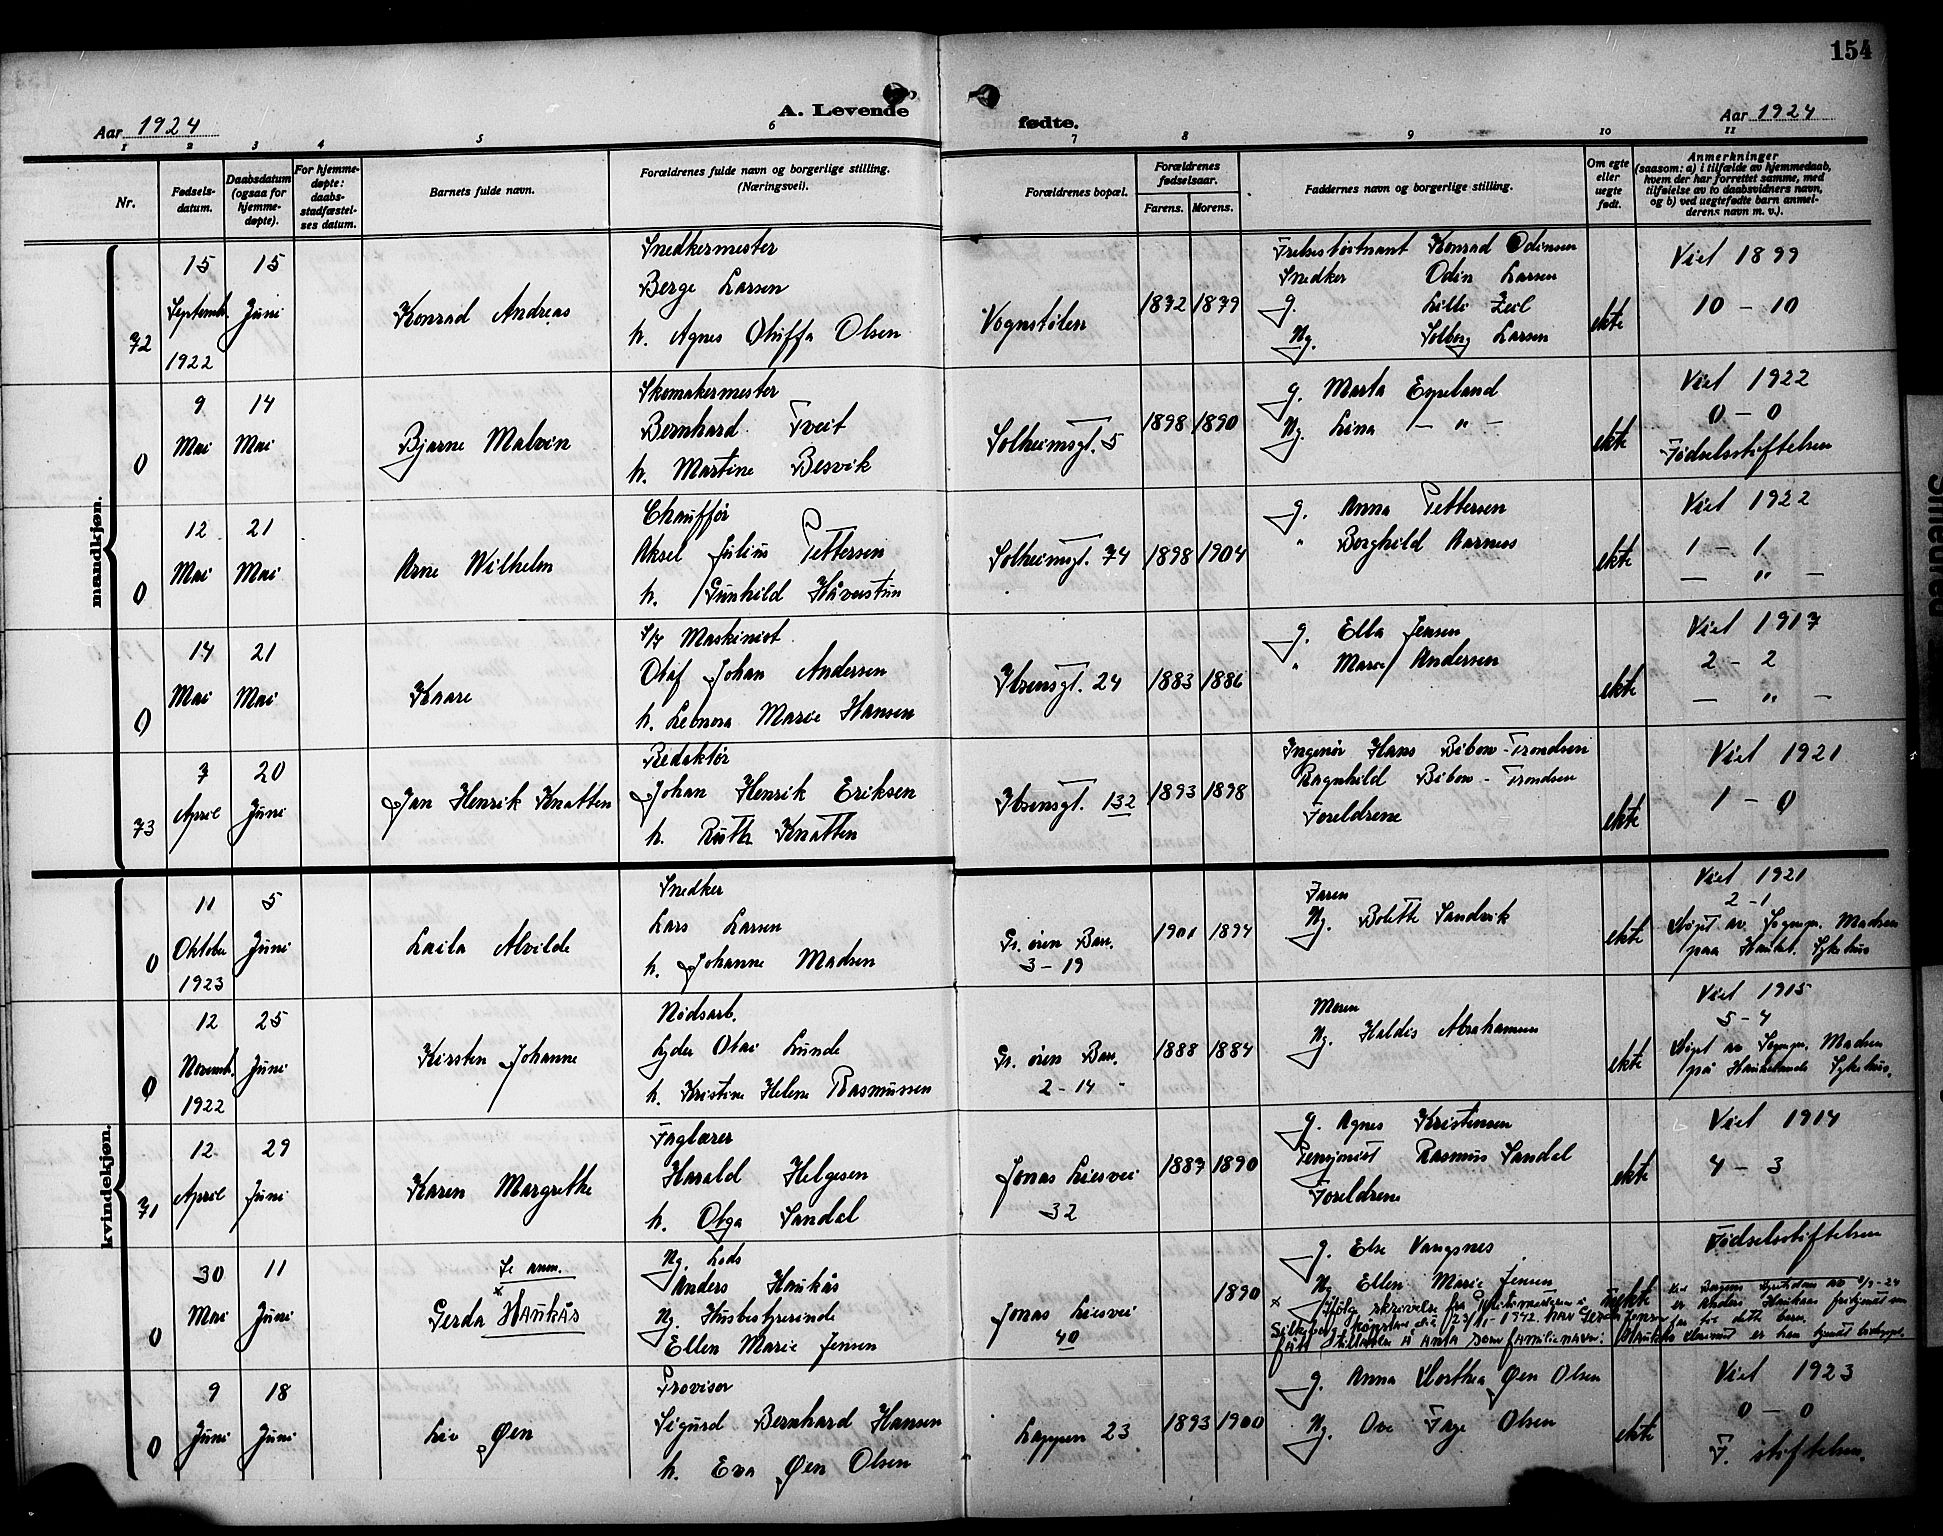 154
Aar 1924
A. Levende fødte.
Aar 1924
1 2 3 4 5 6 7 8 9 10 11
Nr.
Fødsels-
datum.
Daabsdatum
(ogsaa for
hjemme-
døpte).
For hjemme-
døpte:
daabs-
stadfæstel-
ses datum.
Barnets fulde navn.
Forældrenes fulde navn og borgerlige stilling.
(Næringsvei).
Forældrenes bopæl.
Forældrenes
fødselsaar.
Farens. Morens.
Faddernes navn og borgerlige stilling.
Om egte
eller
uegte
født.
Anmerkninger
(saasom: a) i tilfælde av hjemmedaab,
hvem der har forrettet samme, med
tilføielse av to daabsvidners navn,
og b) ved uegtefødte barn anmel-
derens navn m. v.).
mandkjøn.
72
15
Septemb.
1922
15
Juni
Konrad Andreas
Snedkermester
Berge Larsen
h. Agnes Oluffa Olsen
Vognstølen
1872 1879
Frelsesløitnant Konrad Odinsen
Snedker Odin Larsen
g. Lilli
Ug. Solborg Larsen
ekte
Viet 1899
10 – 10
0
9
Mai
14
Mai
Bjarne Malvin
Skomakermester
Bernhard Tveit
h. Martine Besvik
Solheimsgt. 5
1898 1890
g. Marta Espeland
Ug. Lina – " –
ekte
Viet 1922
0 – 0
Fødselsstiftelsen
0
12
Mai
21
Mai
Arne Wilhelm
Chauffør
Aksel Julius Pettersen
h. Gunhild Håvestun
Solheimsgt. 74
1898 1904
g. Anna Pettersen
" Borghild Aarnes
ekte
Viet 1922
1 – 1
— " —
0
14
Mai
21
Mai
Kaare
S/S Maskinist
Olaf Johan Andersen
h. Leonora Marie Hansen
Ibsensgt. 24
1883 1886
g. Ella Jensen
" Marie Andersen
ekte
Viet 1917
2 – 2
— " —
73
7
April
20
Juni
Jan Henrik Knatten
Redaktør
Johan Henrik Eriksen
h. Ruth Knatten
Ibsensgt. 132
1893 1898
Ingeniør Hans Bibow-Trondsen
Ragnhild Bibow-Trondsen
Foreldrene
ekte
Viet 1921
1 – 0
kvindekjøn.
0
11
Oktober
1923
5
Juni
Laila Alvilde
Snedker
Lars Larsen
h. Johanne Madsen
Gr. øren Bar.
3 – 19
1901 1894
Faren
Ug. Bolette Sandvik
ekte
Viet 1921
2 – 1
Døpt av Sognepr. Madsen
paa Haukel. Sykehus
0
12
Novemb.
1922
25
Juni
Kirsten Johanne
Nødsarb.
Lyder Olai Lunde
h. Kristine Helene Rasmussen
Gr. øren Bar.
2 – 14
1888 1884
Moren
Ug. Haldis Abrahamsen
ekte
Viet 1915
5 – 4
Døpt av Sognepr. Madsen
på Haukelands Sykehus.
71
12
April
29
Juni
Karen Margrethe
Faglærer
Harald Helgesen
h. Olga Sandal
Jonas Liesvei
32
1887 1890
g. Agnes Kristensen
Pensjonist Rasmus Sandal
Foreldrene
ekte
Viet 1914
4 – 3
0
30
Mai
11
Juni
Se anm.
x
Gerda Haukås
Ug. Lods
Anders Haukås
Ug. Husbestyrerinde
Ellen Marie Jensen
Jonas Liesvei
40
1890
g. Else Vangsnes
Ug. Ellen Marie Jensen
x Ifølg skrivelse fra
23/11-1942 har Gerda Jensen
fått tillatelse å anta som familienavn: Haukås
uekte
Fødselsstiftelsen
er Anders Haukaas frikjent som
far til dette barn.
0
9
Juni
18
Juni
Liv Øen
Provisor
Sigurd Bernhard Hansen
h. Eva Øen Olsen
Lappen 23
1893 1900
g. Anna Dorthea Øen Olsen
Ug. Ove Tage Olsen
ekte
Viet 1923
0 – 0
F. stiftelsen.